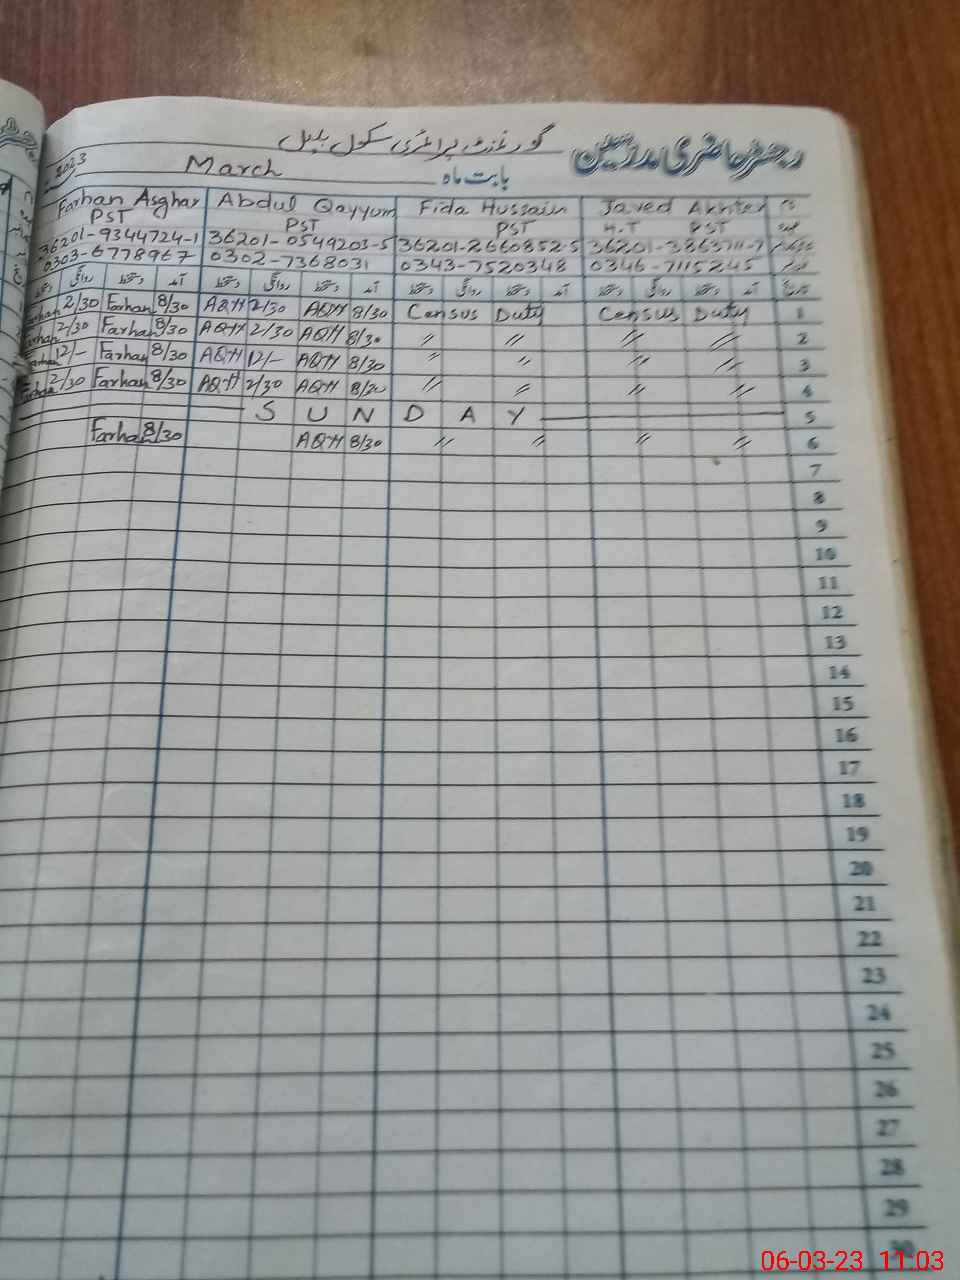 گورنمنٹ پرائمری سکول
رجسٹر حاضری مدرسین
2023 March بابت ماہ
Farhan Asghar Abdul Qayyum Fida Hussain Javed Akhter نام
PST PST PST H.T PST عہدہ
36201-9344724-1 36201-0549203-5 36201-2660852-5 36201-3863711-7
0303-6778967 0302-7368031 0343-7520348 0346-7115245
دستخط روانگی دستخط آمد دستخط روانگی دستخط آمد دستخط روانگی دستخط آمد دستخط روانگی دستخط آمد تاریخ
Farhan 2/30 Farhan 8/30 AQH 2/30 AQH 8/30 Census Duty Census Duty 1
Farhan 2/30 Farhan 8/30 AQH 2/30 AQH 8/30 〃 〃 〃 〃 2
Farhan 12/- Farhan 8/30 AQH 12/- AQH 8/30 〃 〃 〃 〃 3
Farhan 2/30 Farhan 8/30 AQH 2/30 AQH 8/30 〃 〃 〃 〃 4
S U N D A Y 5
Farhan 8/30 AQH 8/30 〃 〃 〃 〃 6
7
8
9
10
11
12
13
14
15
16
17
18
19
20
21
22
23
24
25
26
27
28
29
30
06-03-23 11:03